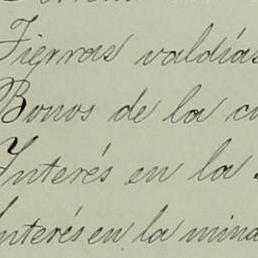 Tierras valdías
Bonos de la
Interés en la
Interés en la mina